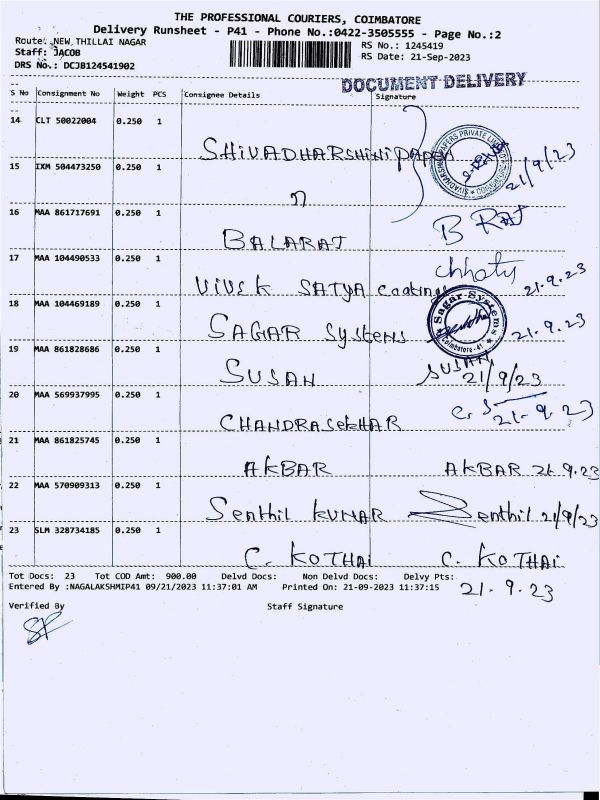 THE PROFESSIONAL COURIERS, COIMBATORE
Delivery Runsheet - P41 - Phone No.:0422-3505555 - Page No.:2
Route: NEW THILLAI NAGAR
RS No.: 1245419
Staff: JACOB
RS Date: 21-Sep-2023
DRS No.: DCJB124541902
DOCUMENT DELIVERY
S No Consignment No Weight PCS Consignee Details Signature
14 CLT 50022004 0.250 1
SHIVADHARSHINI PAPERS 21/9/23
15 IXM 504473250 0.250 1
"
16 MAA 861717691 0.250 1
BALARAJ B RAJ
17 MAA 104490533 0.250 1
VIVEK SATYA Coatings 21.9.23
18 MAA 104469189 0.250 1
SAGAR Systems Sagar Systems Coimbatore - 41 21.9.23
19 MAA 861828686 0.250 1
SUSAN SUSAN 21/9/23
20 MAA 569937995 0.250 1
CHANDRASEKHAR 21.9.23
21 MAA 861825745 0.250 1
AKBAR AKBAR 21.9.23
22 MAA 570909313 0.250 1
Senthil KUMAR Senthil 21/9/23
23 SLM 328734185 0.250 1
C. KOTHAI C. KOTHAI
21.9.23
Tot Docs: 23 Tot COD Amt: 900.00 Delvd Docs: Non Delvd Docs: Delvy Pts:
Entered By :NAGALAKSHMIP41 09/21/2023 11:37:01 AM Printed On: 21-09-2023 11:37:15
Verified By Staff Signature